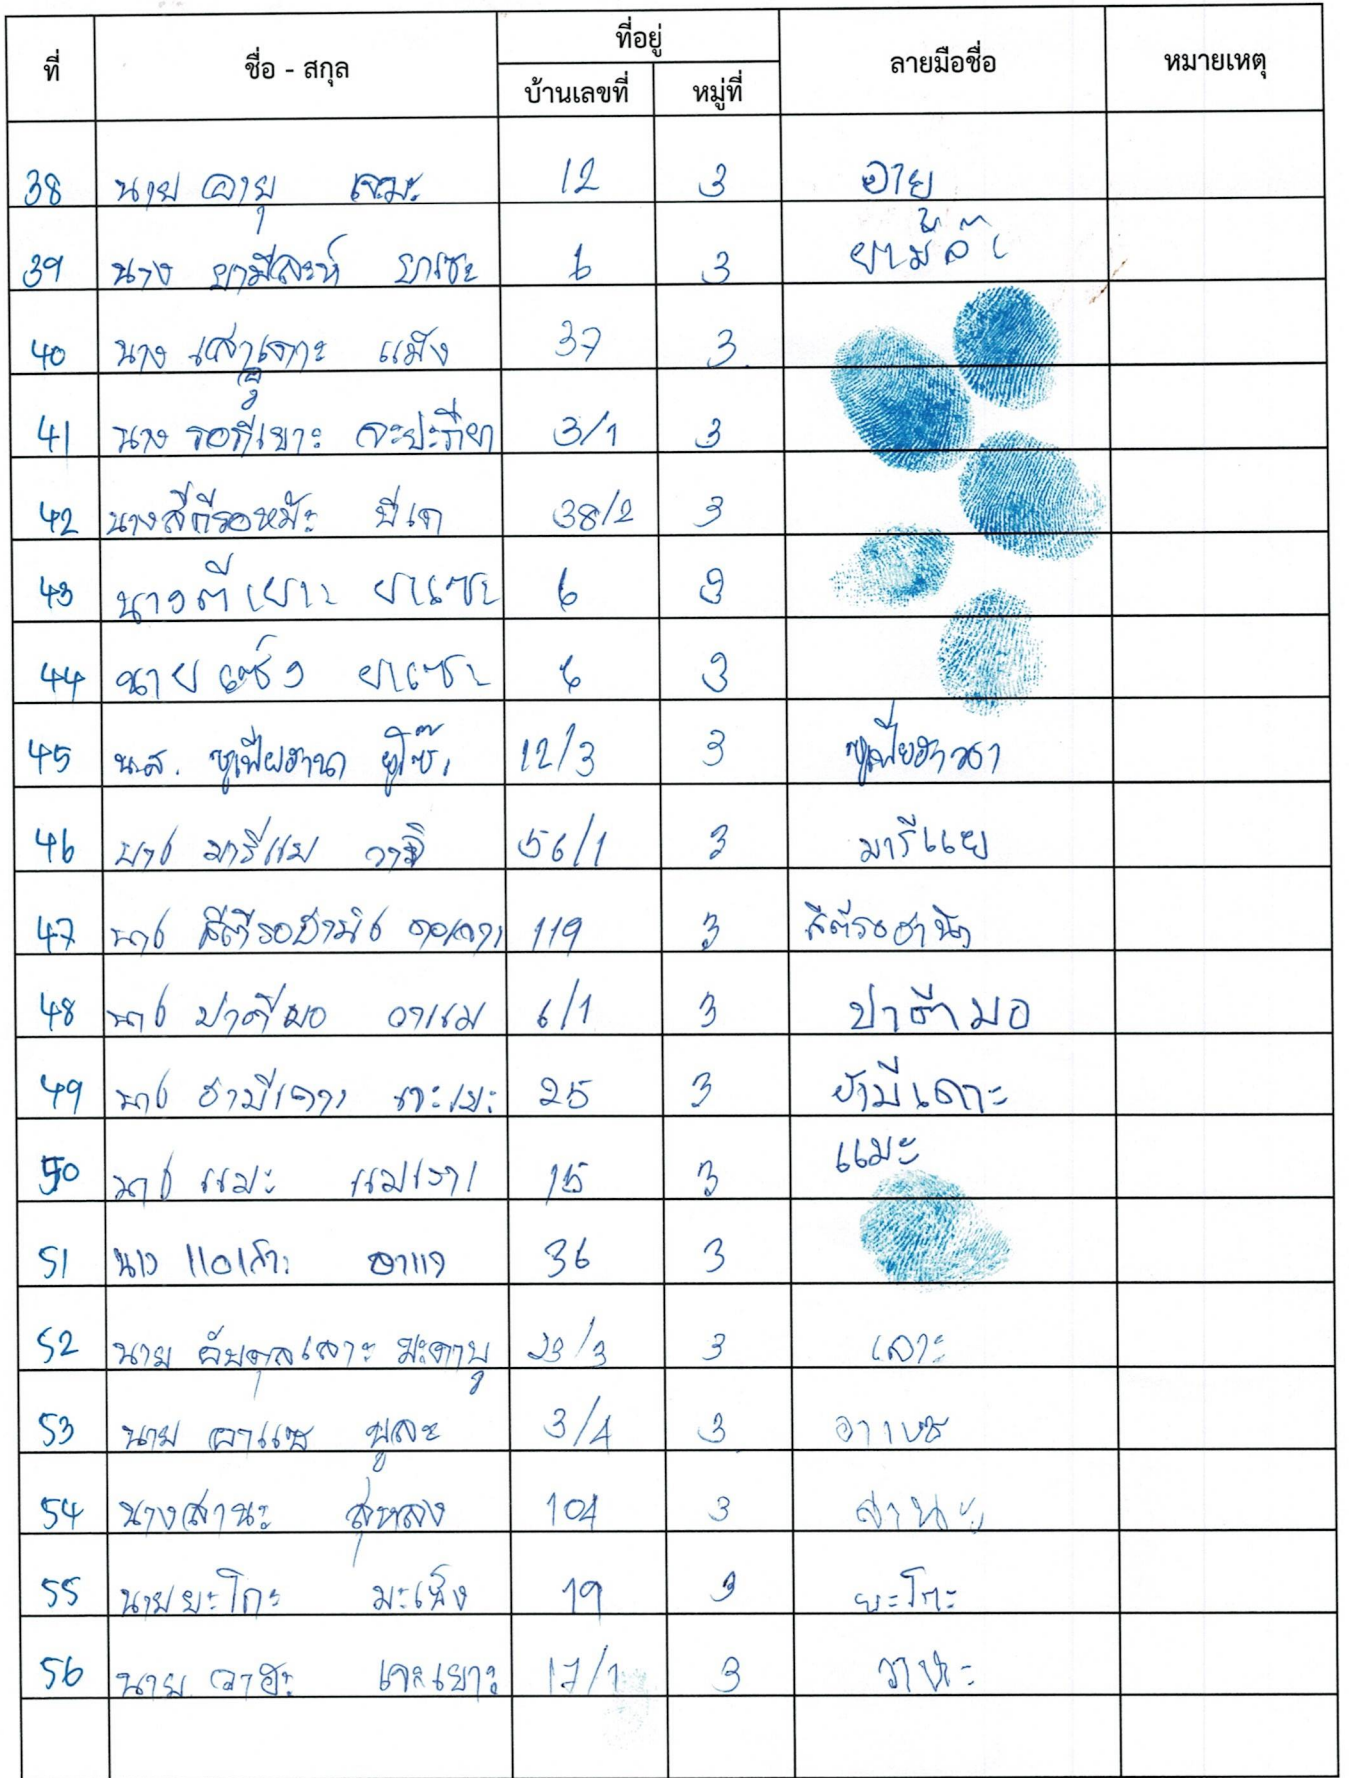 ที่ ชื่อ - สกุล ที่อยู่ ลายมือชื่อ หมายเหตุ
บ้านเลขที่ หมู่ที่
38 นาย อายุ เจะมะ 12 3 อายุ
39 นาง ยามีละห์ ยาเซะ 6 3
40 นาง แม็ง 37 3
41 นาง รอกีเยาะ 3/1 3
42 นางสีตีรอหม๊ะ 38/2 3
43 นางตีเยาะ ยาเซะ 6 3
44 นาย เซ็ง ยาเซะ 6 3
45 น.ส. ซูเฟียฮานา ยูโซ๊ะ 12/3 3 ซูเฟียฮานา
46 นาง มารีแย วานิ 56/1 3 มารีแย
47 นาง สีตีรอฮานิง 119 3 สีตีรอฮานิง
48 นาง ปาตีมอ วาแม 6/1 3 ปาตีมอ
49 นาง ฮามีเดาะ เจะเมะ 25 3 ฮามีเดาะ
50 นาง แมะ แมเราะ 15 3 แมะ
51 นาง แอเสาะ อาแว 36 3
52 นาย อับดุลเลาะ มะดาบู 23/3 3 เลาะ
53 นาย อาแซ มูละ 3/4 3 อาแซ
54 นางสานะ สุหลง 104 3 สานะ
55 นายยะโกะ มะเซ็ง 19 3 ยะโกะ
56 นาย วาฮะ เจะเยาะ 17/1 3